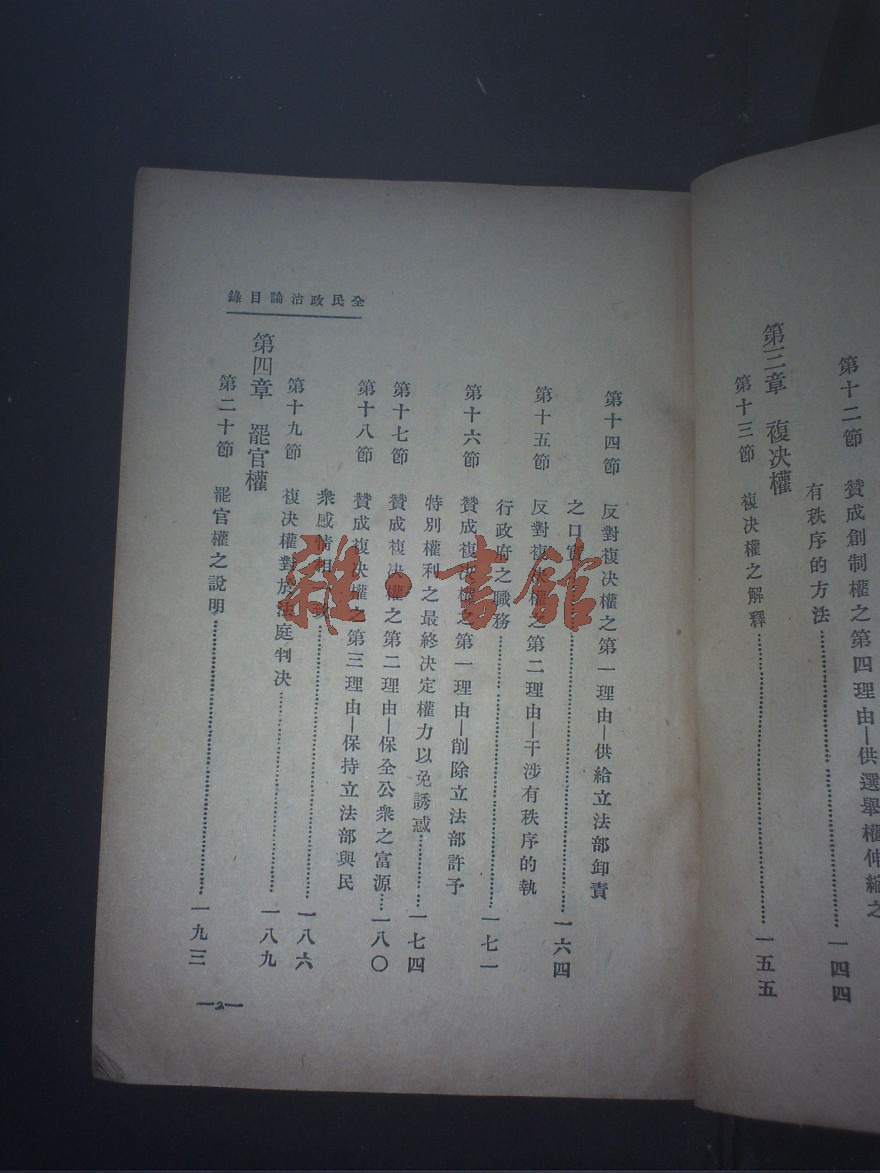 第十二節 贊成創制權之第四理由—供選舉權伸縮之
有秩序的方法 一四四
第三章 複决權
第十三節 複决權之解釋 一五五
全民政治論目錄
第十四節 反對複决權之第一理由—供給立法部卸責
之口 一六四
第十五節 反對複决權之第二理由—干涉有秩序的執
行政府之職務 一七一
第十六節 贊成複决權之第一理由—削除立法部許予
特別權利之最終決定權力以免誘惑 一七四
第十七節 贊成複决權之第二理由—保全公衆之富源 一八〇
第十八節 贊成複决權之第三理由—保持立法部與民
衆感情相 一八六
第十九節 複决權對於法庭判决 一八九
第四章 罷官權
第二十節 罷官權之說明 一九三
—2—
雜·書館